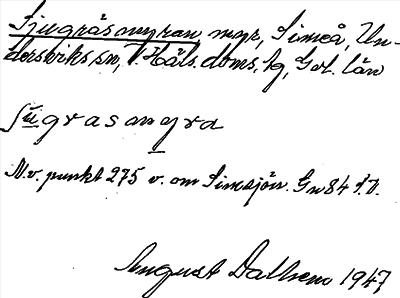 Sjugråsmyran, myr, Simeå, Un-
dersviks sn, V. Häls. doms, lg, Gvl. län
ʃu̲grasmyra
N.v. punkt 275 v. om Simsjön. Gn 84 f.D.
August Dalhem 1947